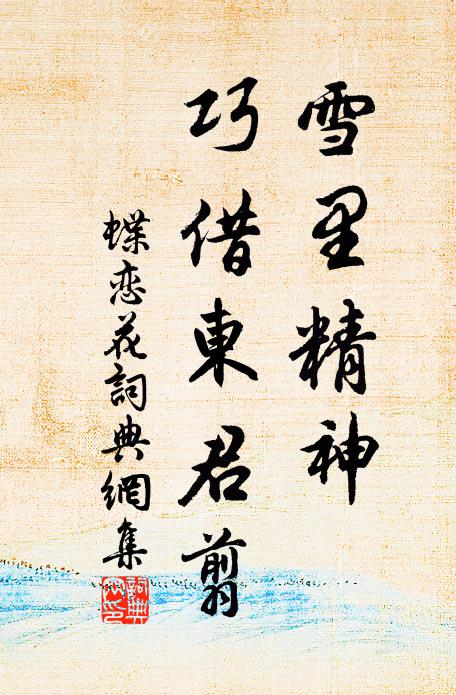 雪里精神
巧借東君翦
蝶恋花詞典網集
詞典